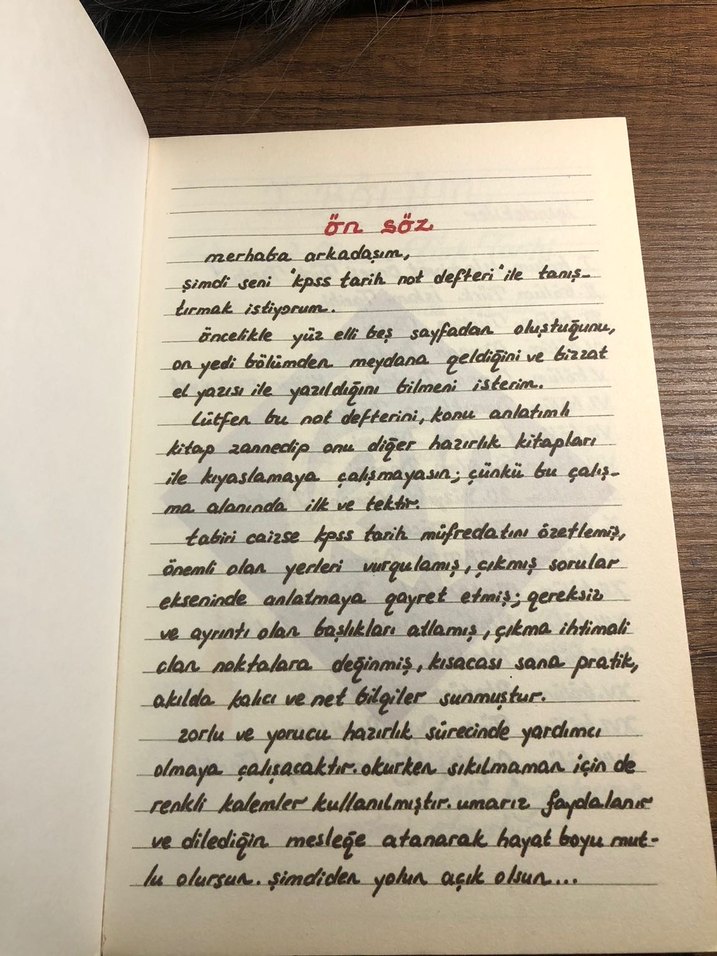 ön söz
merhaba arkadaşım,
şimdi seni "kpss tarih not defteri" ile tanış-
tırmak istiyorum.
öncelikle yüz elli beş sayfadan oluştuğunu,
on yedi bölümden meydana geldiğini ve bizzat
el yazısı ile yazıldığını bilmeni isterim.
lütfen bu not defterini, konu anlatımlı
kitap zannedip onu diğer hazırlık kitapları
ile kıyaslamaya çalışmayasın; çünkü bu çalış-
ma alanında ilk ve tektir.
tabiri caizse kpss tarih müfredatını özetlemiş,
önemli olan yerleri vurgulamış, çıkmış sorular
ekseninde anlatmaya gayret etmiş; gereksiz
ve ayrıntı olan başlıkları atlamış, çıkma ihtimali
olan noktalara değinmiş, kısacası sana pratik,
akılda kalıcı ve net bilgiler sunmuştur.
zorlu ve yorucu hazırlık sürecinde yardımcı
olmaya çalışacaktır. okurken sıkılmaman için de
renkli kalemler kullanılmıştır. umarız faydalanır
ve dilediğin mesleğe atanarak hayat boyu mut-
lu olursun. şimdiden yolun açık olsun...